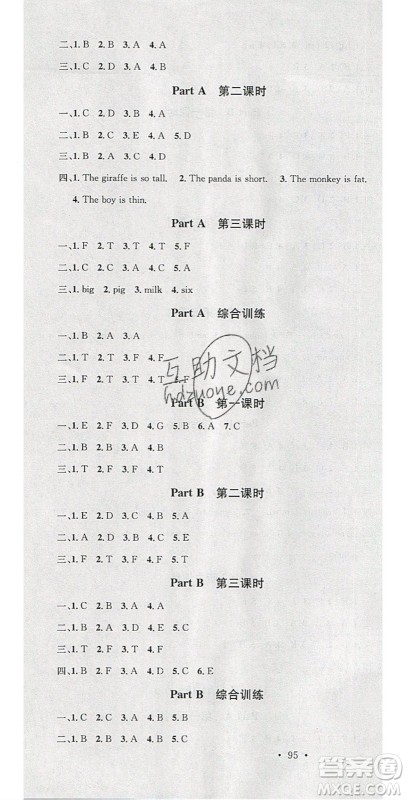 二、1. B　2. B　3. A　4. A
三、1. C　2. C　3. B　4. D
Part A　第二课时
一、1. C　2. D　3. A　4. A　5. D
二、1. B　2. C　3. A　4. D
三、1. A　2. D　3. C　4. A
四、1. The giraffe is so tall.　2. The panda is short.　3. The monkey is fat.
4. The boy is thin.
Part A　第三课时
一、1. F　2. T　3. T　4. T　5. F
二、1. C　2. A　3. B　4. A
三、1. big　2. pig　3. milk　4. six
Part A　综合训练
一、1. B　2. A　3. A
二、1. F　2. T　3. T　4. F
三、1. A　2. A　3. A　4. A　5. A
Part B　第一课时
一、1. E　2. F　3. D　4. G　5. B　6. A　7. C
二、1. B　2. C　3. A　4. A
三、1. T　2. F　3. T　4. T
Part B　第二课时
一、1. E　2. D　3. C　4. B　5. A
二、1. D　2. B　3. A　4. C　5. A
三、1. F　2. F　3. T　4. T　5. T
Part B　第三课时
一、1. C　2. B　3. A　4. A
二、1. B　2. A　3. A　4. B
三、1. B　2. B　3. A　4. A
四、1. D　2. B　3. A　4. F　5. C　6. E
Part B　综合训练
一、1. C　2. B　3. A　4. B
二、1. A　2. A　3. B　4. A　5. C
· 95 ·
互助文档
hdzuoye.com
答案圈
MXQE.COM